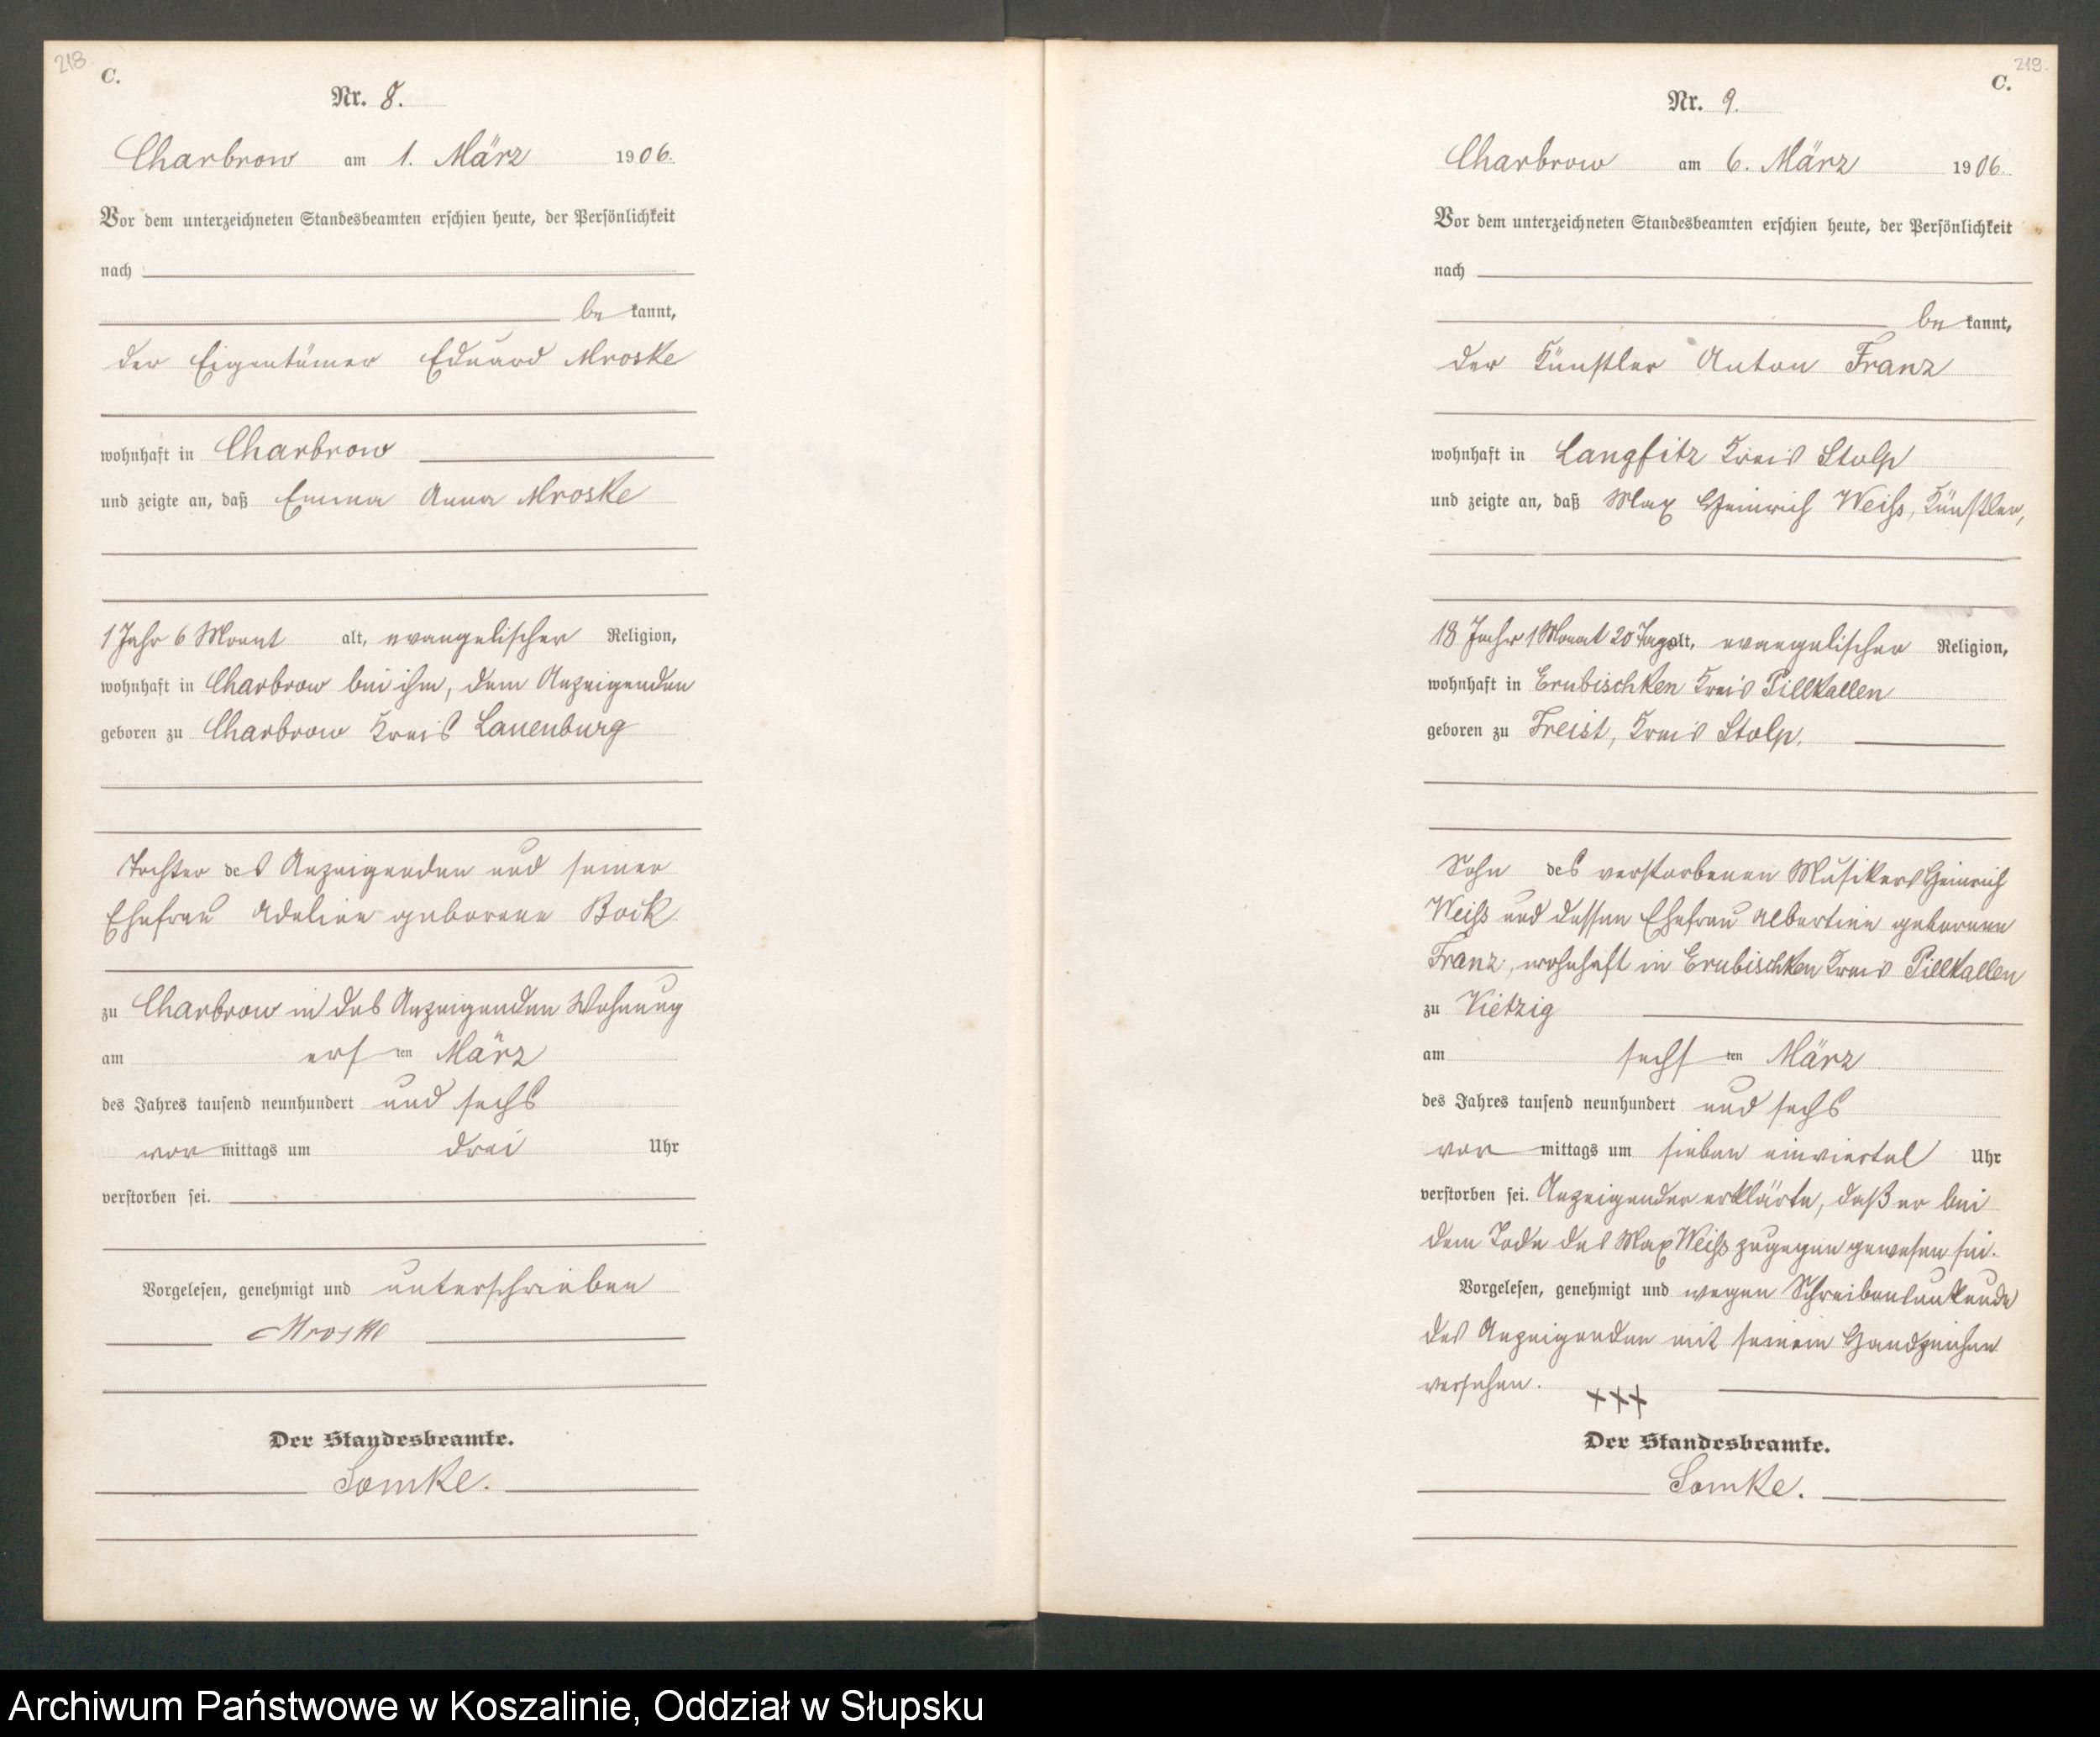 218
C.
Nr. 8.
Charbrow am 1. März 1906.
Vor dem unterzeichneten Standesbeamten erschien heute, der Persönlichkeit
nach
be kannt,
der Eigentümer Eduard Mroske
wohnhaft in Charbrow
und zeigte an, daß Emma Anna Mroske
1 Jahr 6 Monat alt, evangelischer Religion,
wohnhaft in Charbrow bei ihm, dem Anzeigenden
geboren zu Charbrow Kreis Lauenburg
Tochter des Anzeigenden und seiner
Ehefrau Adeline geborene Bock
zu Charbrow in des Anzeigenden Wohnung
am ersten März
des Jahres tausend neunhundert und sechs
vor mittags um drei Uhr
verstorben sei.
Vorgelesen, genehmigt und unterschrieben
Mroske
Der Standesbeamte.
Somke.
219.
C.
Nr. 9.
Charbrow am 6. März 1906.
Vor dem unterzeichneten Standesbeamten erschien heute, der Persönlichkeit
nach
be kannt,
der Künstler Anton Franz
wohnhaft in Langfitz Kreis Stolp
und zeigte an, daß Max Heinrich Weiß, Künstler,
18 Jahr 1 Monat 20 Tage alt, evangelischer Religion,
wohnhaft in Erubischken Kreis Pillkallen
geboren zu Freist, Kreis Stolp,
Sohn des verstorbenen Musikers Heinrich
Weiß und dessen Ehefrau Albertine geborenen
Franz, wohnhaft in Erubischken Kreis Pillkallen
zu Vietzig
am sechsten März
des Jahres tausend neunhundert und sechs
vor mittags um sieben einviertel Uhr
verstorben sei. Anzeigender erklärte, daß er bei
dem Tode des Max Weiß zugegen gewesen sei.
Vorgelesen, genehmigt und wegen Schreibensunkunde
des Anzeigenden mit seinem Handzeichen
versehen.
+++
Der Standesbeamte.
Somke.
Archiwum Państwowe w Koszalinie, Oddział w Słupsku